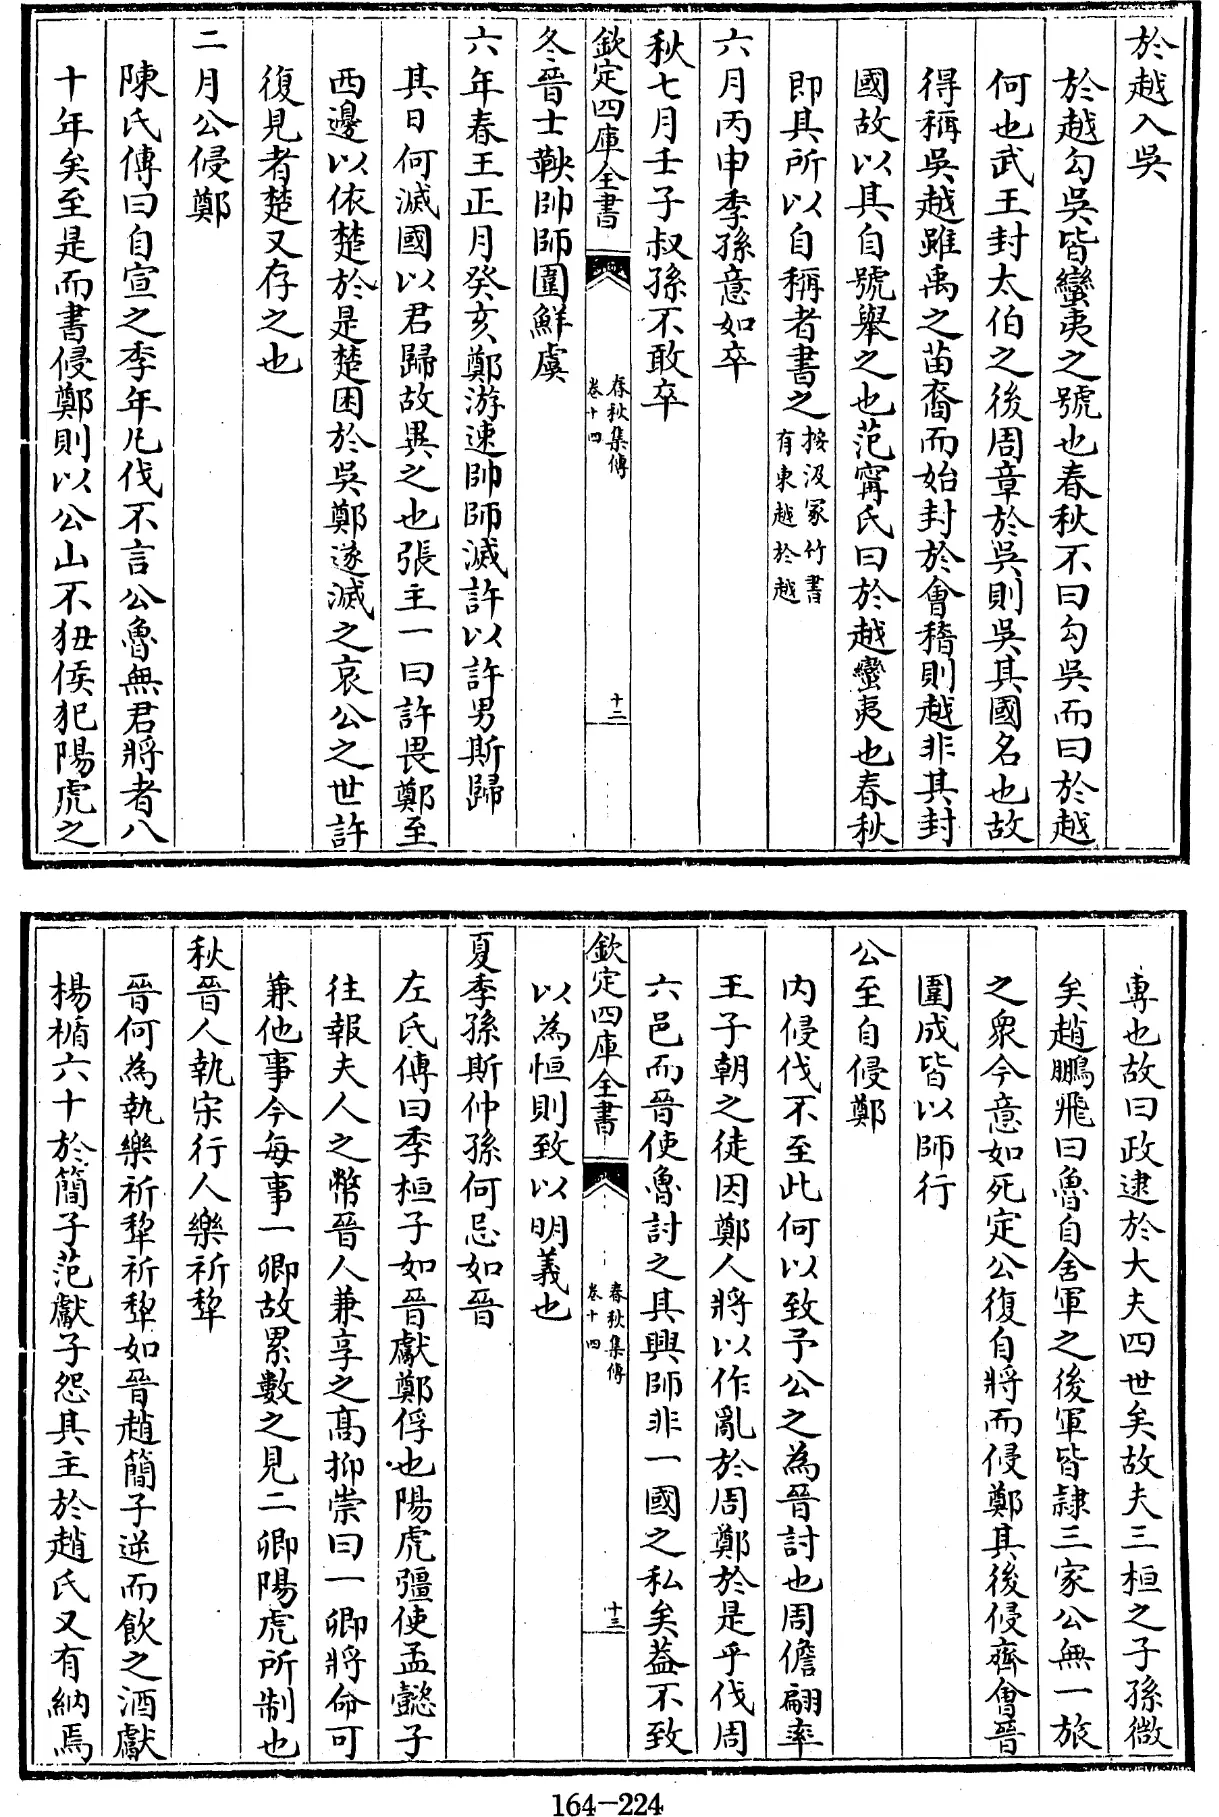 於越入吳
於越勾吳皆蠻夷之號也春秋不曰勾吳而曰於越
何也武王封太伯之後周章於吳則吳其國名也故
得稱吳越雖禹之苗裔而始封於會稽則越非其封
國故以其自號舉之也范甯氏曰於越蠻夷也春秋
即其所以自稱者書之按汲冢竹書有東越於越
六月丙申季孫意如卒
秋七月壬子叔孫不敢卒
欽定四庫全書
春秋集傳
卷十四
十二
冬晉士鞅帥師圍鮮虞
六年春王正月癸亥鄭游速帥師滅許以許男斯歸
其日何滅國以君歸故異之也張主一曰許畏鄭至
西邊以依楚於是楚困於吳鄭遂滅之哀公之世許
復見者楚又存之也
二月公侵鄭
陳氏傳曰自宣之季年凡伐不言公魯無君將者八
十年矣至是而書侵鄭則以公山不狃侯犯陽虎之
專也故曰政逮於大夫四世矣故夫三桓之子孫微
矣趙鵬飛曰魯自舍軍之後軍皆隷三家公無一旅
之衆今意如死定公復自將而侵鄭其後侵齊會晉
圍成皆以師行
公至自侵鄭
内侵伐不至此何以致予公之為晉討也周儋翩率
王子朝之徒因鄭人將以作亂於周鄭於是乎伐周
六邑而晉使魯討之其興師非一國之私矣葢不致
欽定四庫全書
春秋集傳
卷十四
十三
以為恒則致以明義也
夏季孫斯仲孫何忌如晉
左氏傳曰季桓子如晉獻鄭俘也陽虎彊使孟懿子
往報夫人之幣晉人兼享之髙抑崇曰一卿將命可
兼他事今每事一卿故累數之見二卿陽虎所制也
秋晉人執宋行人樂祈犂
晉何為執樂祈犂祈犂如晉趙簡子逆而飲之酒獻
楊楯六十於簡子范獻子怨其主於趙氏又有納焉
164-224